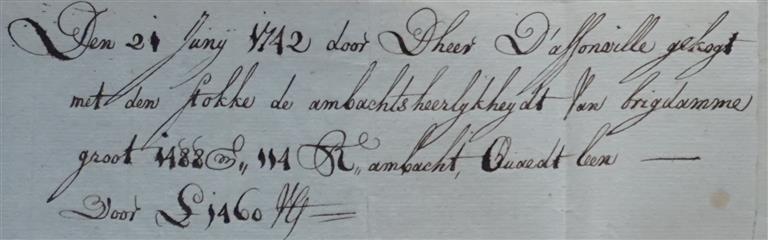 Den 21 Junij 1742 door Dheer D'assonville gekogt
met den stokke de ambachtsheerlykheydt Van brigdamme
groot 1488 G,, 114 R,, ambacht, Quaedt leen —
Voor £ 1460 Vls =